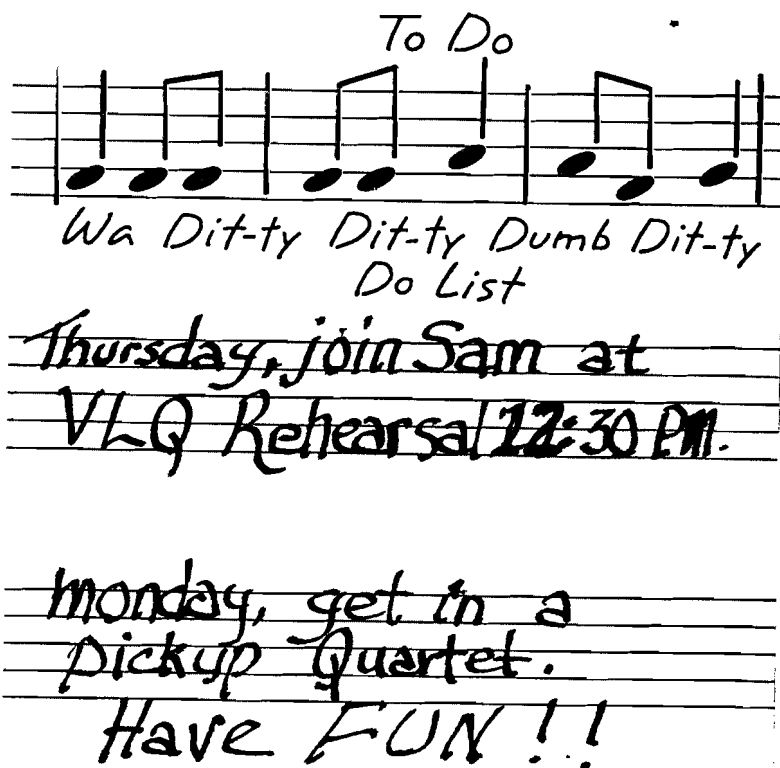 To Do
Wa Dit-ty Dit-ty Dumb Dit-ty
Do List
Thursday, join Sam at
VLQ Rehearsal 12:30 PM.
monday, get in a
pickup Quartet.
Have FUN!!